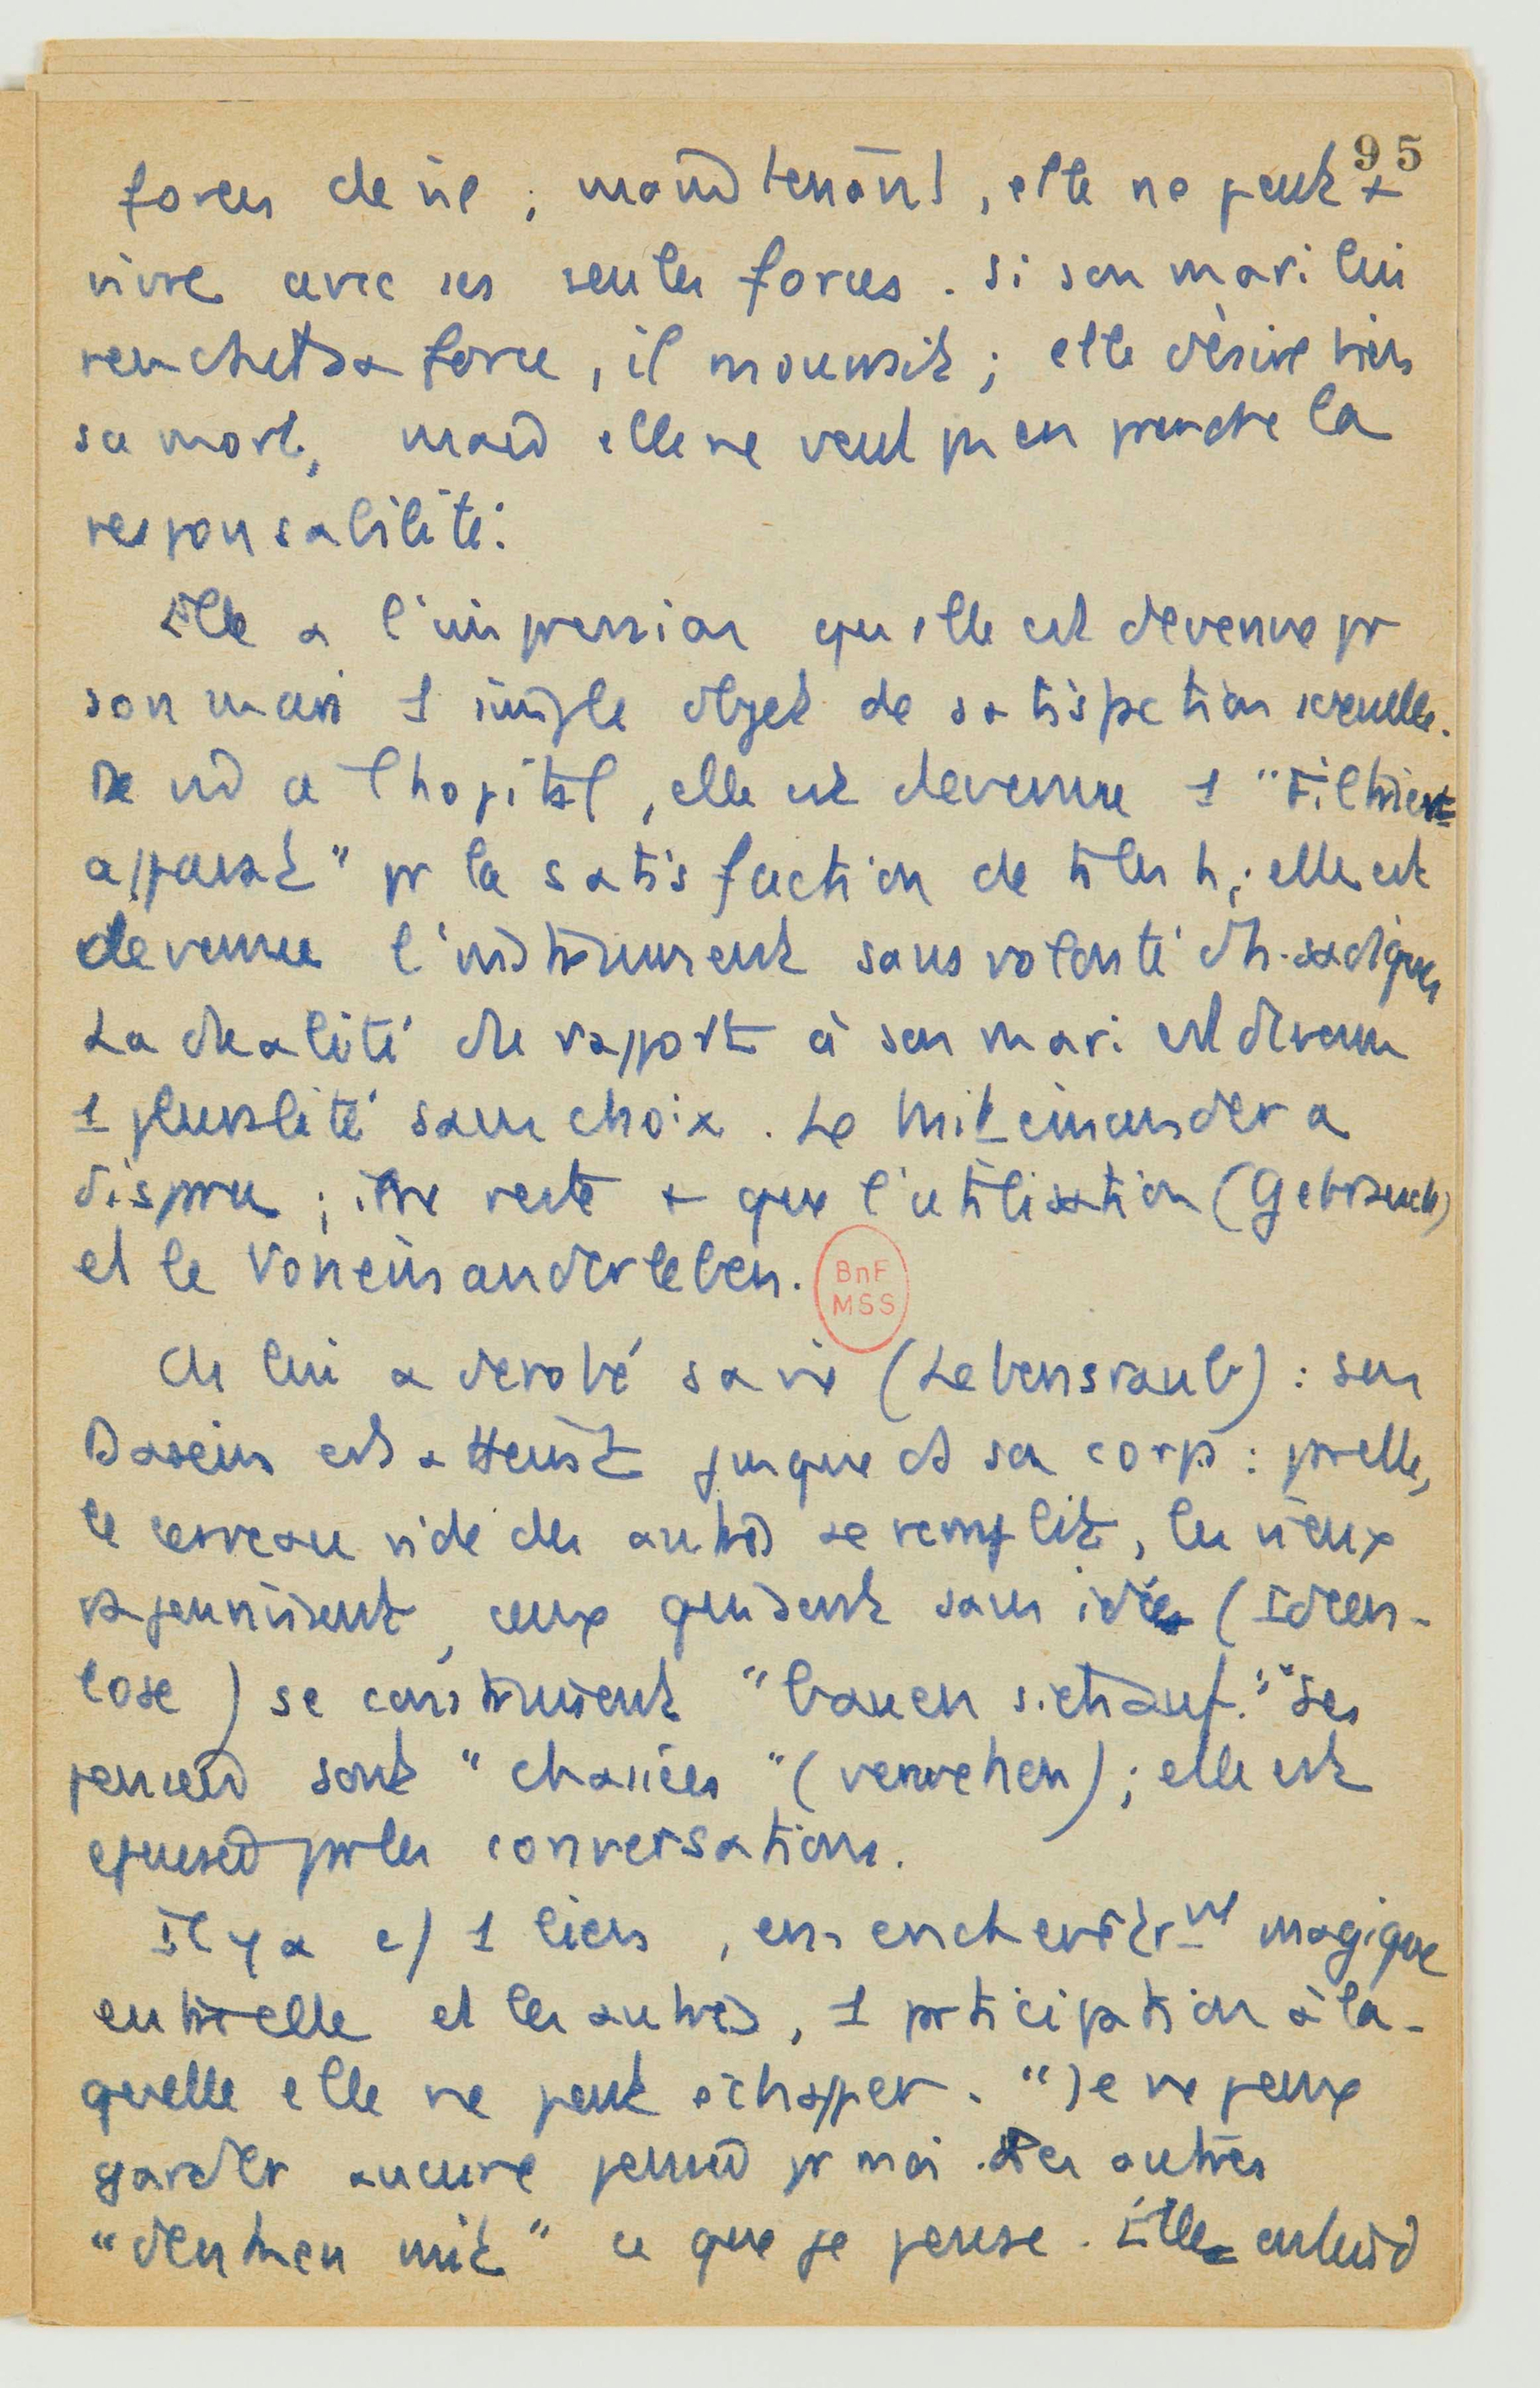 95
forces de vie ; maintenant, elle ne peut +
vivre avec ses seules forces. Si son mari lui
rendait sa force, il mourrait ; elle désire bien
sa mort, mais elle ne veut pas en prendre la
responsabilité.
Elle a l'impression qu'elle est devenue pr
son mari 1 simple objet de satisfaction sexuelle.
De là à l'hopital, elle est devenue 1 "Filtrier-
apparat" pr la satisfaction de ts les h ; elle est
devenue l'instrument sans volonté d'h. sadiques
La dualité de rapport à son mari est devenue
1 pluralité sans choix. Le Miteinander a
disparu ; il ne reste + que l'utilisation (Gebrauch)
et le Voneinanderleben.
BnF
MSS
On lui a dérobé sa vie (Lebensraub) : son
Dasein est atteint jusque ds son corps : pr elle,
le cerveau vide des autres se remplit, les vieux
rajeunissent, ceux qui sont sans idées (Ideen-
lose) se construisent "bauen sich auf." Ses
pensées sont "chassées" (verwehen) ; elle est
épuisée pr les conversations.
Il y a 1 lien, enchevêtrmt magique
entre elle et les autres, 1 prticipation à la-
quelle elle ne peut échapper. "Je ne peux
garder aucune pensée pr moi. Les autres
"denken mit" ce que je pense. Elle entend